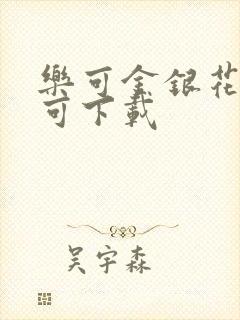 樂可金銀花
可下載
吴宇森